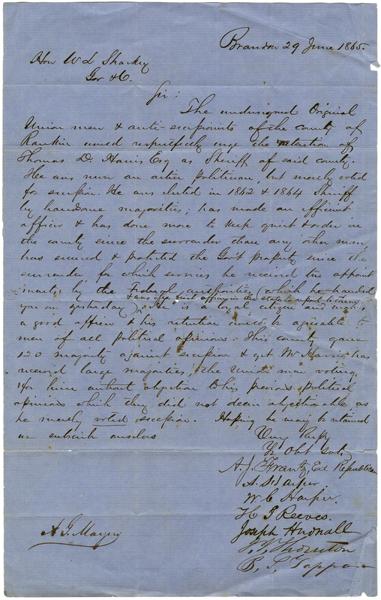 Brandon 29 June 1865
Hon W L Sharkey
Gov &C.
Sir:
The undersigned Original
Union men & anti-secessionists of the county of
Rankin would respectfully urge the retention of
Thomas D. Harris Esq as Sheriff of said county.
He was never an active politician, but merely voted
for secession. He was elected in 1862 & 1864 Sheriff
by handsome majorities; has made an efficient
officer & has done more to keep quiet & order in
the county since the surrender than any other man,
has secured & protected the Govt property since the
surrender for which services he received the appoint
ment by the Federal authorities (which he handed
you on yesterday). He is a loyal citizen and makes
a good officer & his retention would be agreeable to
men of all political opinions. This county gave
150 majority against secession & yet Mr Harris has
received large majorities, the Union men voting
for him without objection to his previous political
opinions which they did not deem objectionable as
he merely voted secession. Hoping he may be retained
we subscribe ourselves
Very Resply
Yr Obt Svts
A. J. Frantz, Ed Republican
A. S. Harper
W. C. Harper.
H J Reeves.
Joseph Hudnall
Thornton
A. G. Mayers